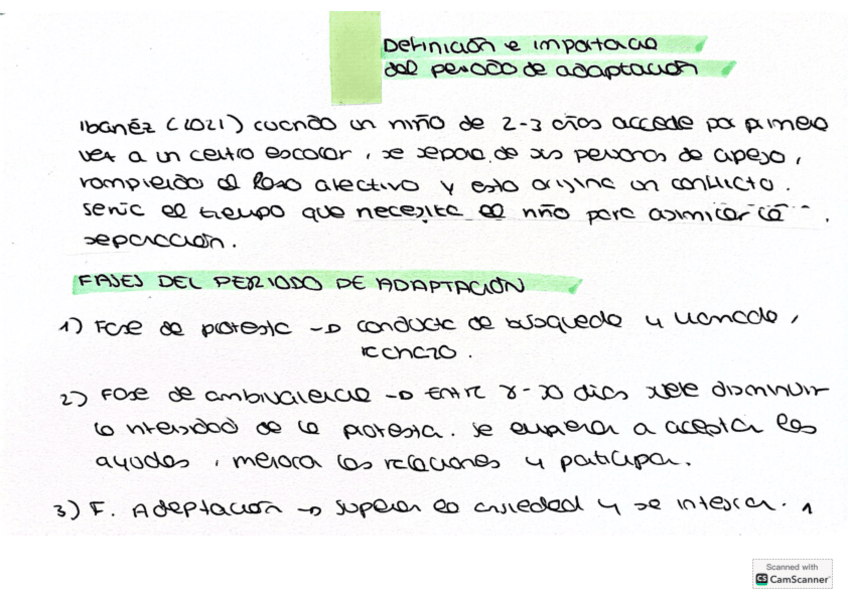 Definición e importancia
del periodo de adaptación
Ibañéz (2021) cuando un niño de 2-3 años accede por primera
vez a un centro escolar, se separa de sus personas de apego,
rompiendo el lazo afectivo y esto origina un conflicto.
Sería el tiempo que necesita el niño para asimilar la
separación.
FASES DEL PERIODO DE ADAPTACIÓN
1) Fase de protesta → conducta de búsqueda y llamada,
rechazo.
2) Fase de ambivalencia → Entre 8-30 días suele disminuir
la intensidad de la protesta. Se empieza a aceptar las
ayudas, mejora las relaciones y participa.
3) F. Adaptación → superar la ansiedad y se interesa. 1
Scanned with
CS CamScanner